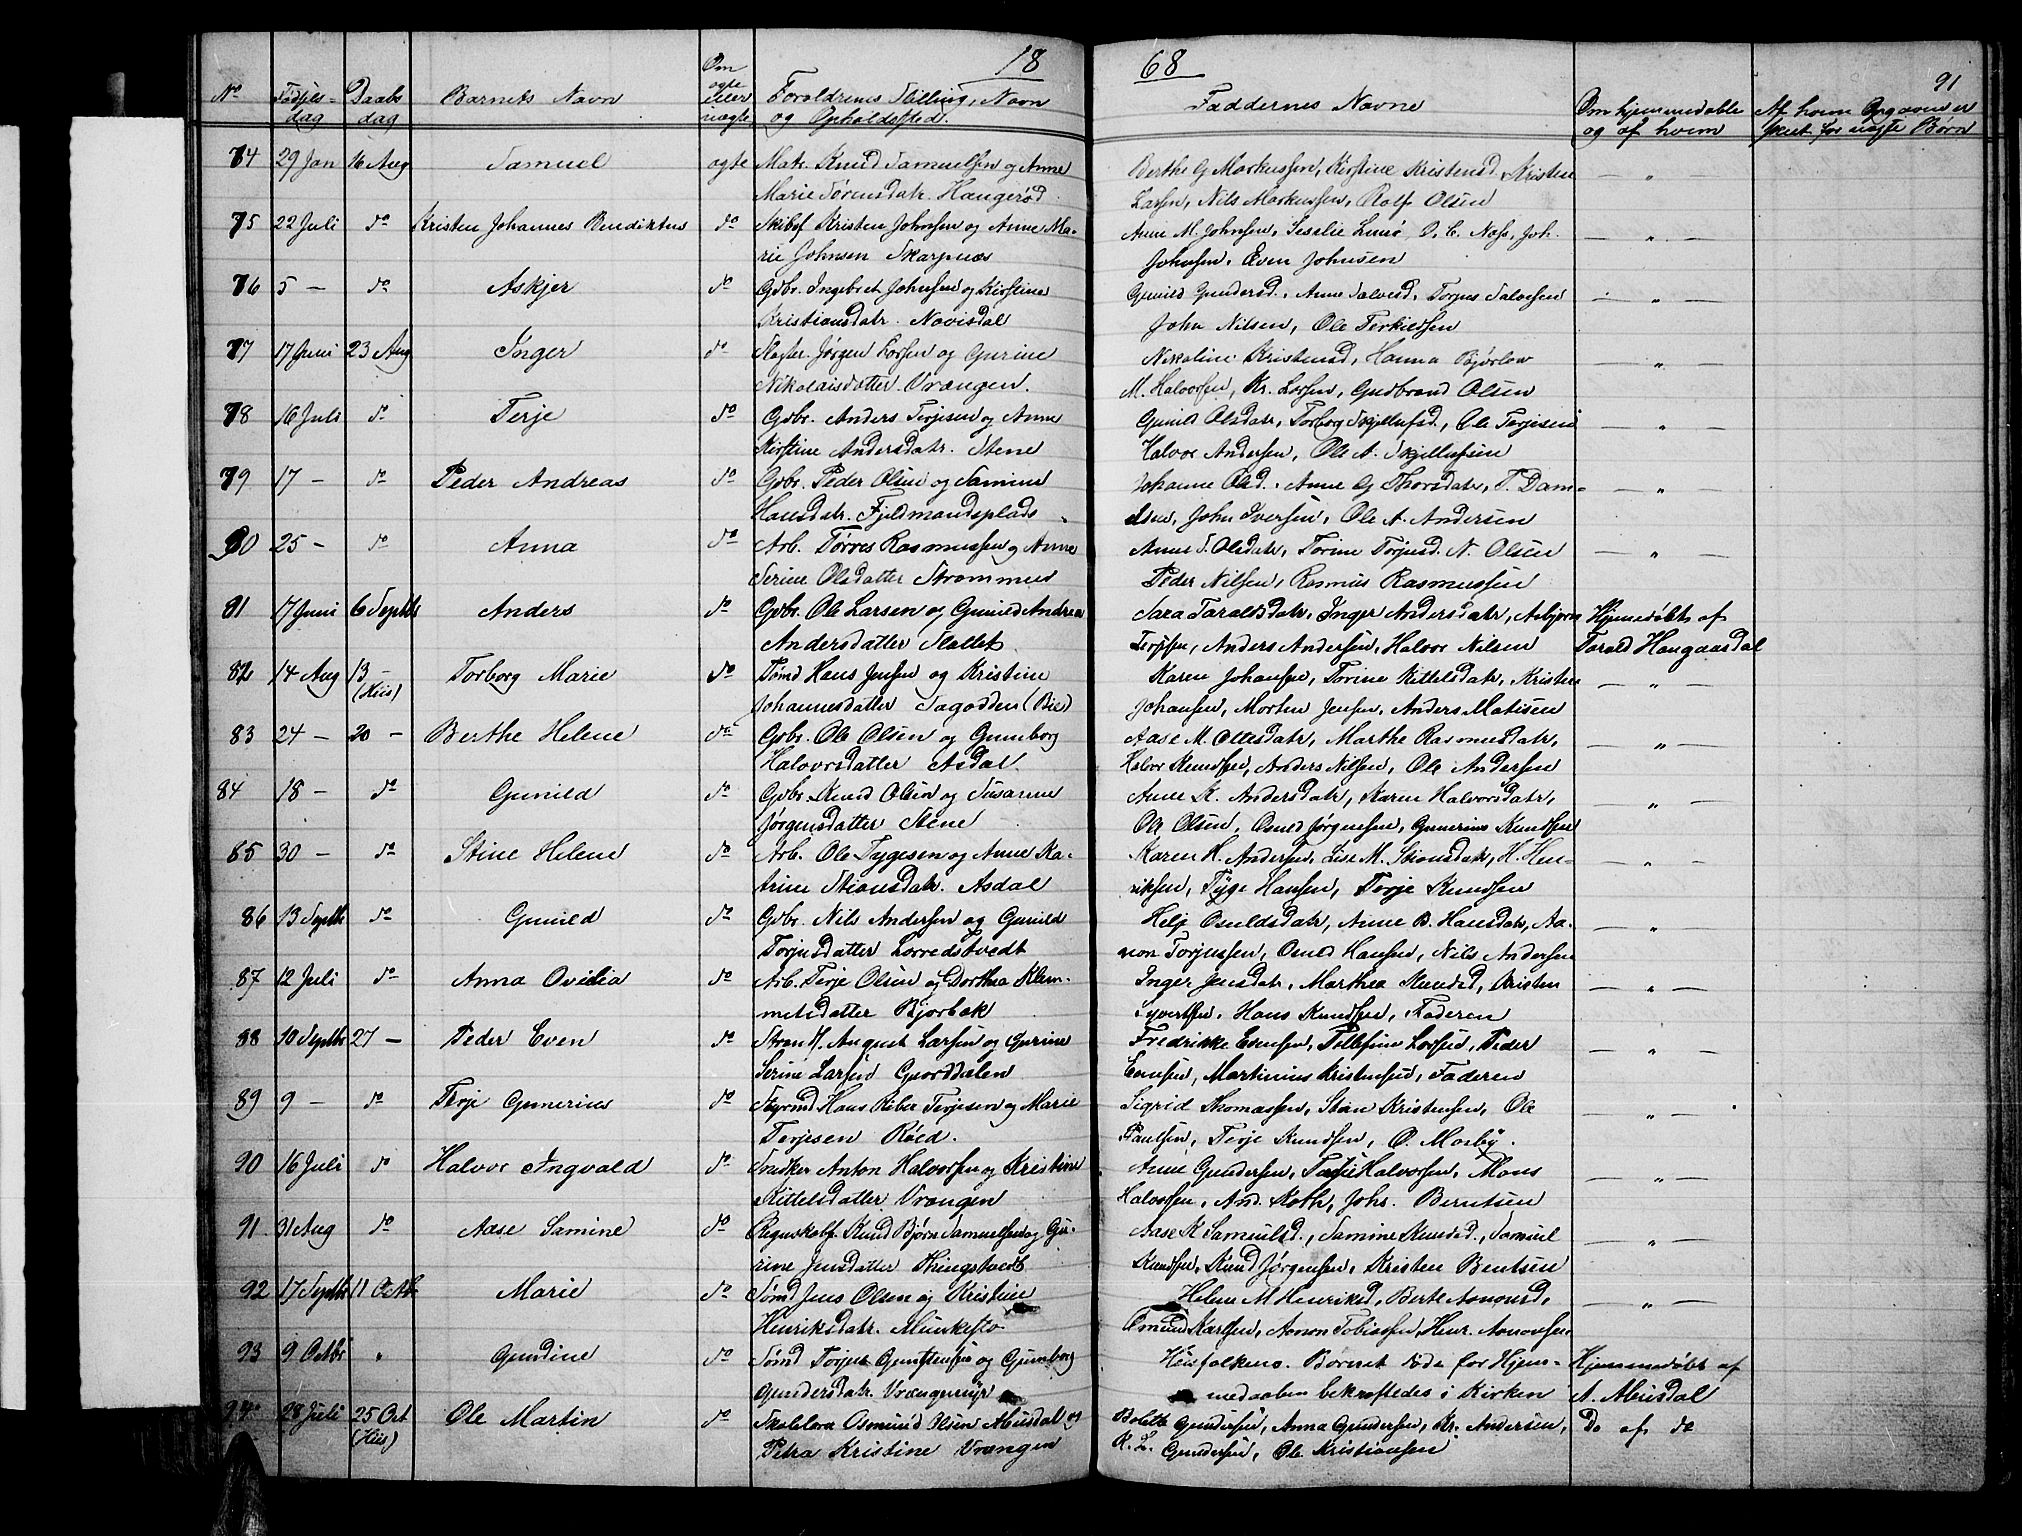 18 68
91
No Fødsels- dag Daabs dag Barnets Navn Om ægte eller uægte Forældrenes Stilling, Navn og Opholdssted. Faddernes Navne Om hjemmedøbte og af hvem Af hvem Opgaven er skeet for uægte Børn
74 29 Jan 16 Aug Samuel ægte Matr. Knud Samuelsen og Anne Berthe G Markussen, Kirstine Kristensd. Kristen — " —
Marie Sørensdatr. Haugerød Larsen, Nils Markussen, Rolf Olsen
75 22 Juli do Kristen Johannes Bendiktus do Skibsf Kristen Johnsen og Anne Ma- Anne M. Johnsen, Joh. — " —
rie Johnsen Skarpnæs Johnsen. Even Johnsen
76 5 — do Askjer do Gdbr. Ingebret Johnsen og Kirstine Gunild Gundersd., Anne Salvesd, Torjus Salvesen — " —
Kristiansdatr. Novisdal John Nilsen, Ole Terkildsen
77 17 Juni 23 Aug Inger do Jørgen Larsen og Gurine Nikoline Kristensd, Hanna — " —
Nikolaisdatter. Vrængen. M. Halvorsen, Kr. Larsen, Gudbrand Olsen
78 16 Juli do Terje do Gdbr. Anders Terjesen og Anne Gunild Olsdatr, Torborg Skjellufsd., Ole Terjesen — " —
Kirstine Andersdatr. Stene Halvor Andersen, Ole A.
79 17 — do Peder Andreas do Gdbr. Peder Olsen og Samine Johanne Olsd., Anne G Thorsdatr, — " —
Hansdatr. Fjeldmandsplads John Iversen, Ole A. Andersen
80 25 — do Anna do Arb. Tørres Rasmussen og Anne Anne T. Olsdatr, Torine Torjusd. N. Olsen — " —
Serine Olsdatter Strømmen Peder Nilsen, Rasmus Rasmussen
81 17 Juni 6 Septb Anders do Gdbr. Ole Larsen og Gunild Andrea Sara Taraldsdatr, Inger Andersdatr, Asbjørn Hjemmedøbt af
Andersdatter Slottet Anders Andersen, Halvor Nilsen Tarald Haugaasdal
82 14 Aug 13 — (Hiis) Torborg Marie do Tømd Hans Jensen og Kristine Karen Johansen, Torine Kittelsdatr, Kristen — " —
Johannesdatter Sagodden (Bie) Johansen, Morten Jensen, Anders Matisen
83 24 — 20 — Berthe Helene do Gdbr. Ole Olsen og Gunborg Aase M. Ollesdatr, Marthe Rasmusdatr, — " —
Halvorsdatter Asdal. Halvor Knudsen, Anders Nilsen, Ole Andersen
84 18 — do Gunild do Gdbr. Knud Olsen og Susanne Anne K. Andersdatr, Karen Halvorsdatr, — " —
Jørgensdatter Stene Ole Olsen, Osuld Jørgensen, Gunerius Knudsen
85 30 — do Stine Helene do Arb. Ole Tygesen og Anne Ka- Karen H. Andersen, Lise M. Stiansdatr, H. Hen- — " —
trine Stiansdatr. Asdal riksen, Tyge Hansen, Terje Knudsen
86 13 Septb do Gunild do Gdbr. Nils Andersen og Gunild Helje Osuldsdatr, Anne B. Hansdatr, Aa- — " —
Torjusdatter Lorredstvedt non Torjussen, Osuld Hansen, Nils Andersen
87 12 Juli do Anna Ovidia do Arb. Terje Olsen og Dorthea Klem- Inger Jensdatr, Marthea Knudsd, Kristen — " —
metsdatter Bjorbæk Syvertsen, Hans Knudsen, Faderen
88 10 Septb 27 — Peder Even do August Larsen og Gurine Fredrikke Evensen, Tellefine Larsen, Peder — " —
Serine Larsen Gjorddalen Evensen, Martinius Kristensen, Faderen
89 9 — do Terje Gunerius do Styrmd Hans Riber Terjesen og Marie Sigrid Thomassen, Kristensen, Ole — " —
Terjesen Røed. Paulsen, Terje Knudsen, O. Mosby.
90 16 Juli do Halvor Ingvald do Snedker Anton Halvorsen og Kristine Anne Gundersen, Halvorsen, Mons — " —
Kittelsdatter Vrængen Halvorsen, And. Roth, Johs. Berntsen
91 31 Aug do Aase Samine do Regnskabsf. Knud Bjørn Samuelsen og Gu- Aase K Samuelsd., Samine Knudsd., Samuel — " —
rine Jensdatter Thingstvedt Knudsen, Knud Jørgensen, Kristen Bentsen
92 17 Septb 11 Octb Marie do Tømd Jens Olsen og Kristine Helene M Henriksd, Berte Aanonsd, — " —
Henriksdatr. Munkesto Omund Karlsen, Aanon Tobiassen, Henr. Aanonsen
93 9 Octbr " Gundine do Tømd Torjus Gunstensen og Gunborg Huusfolkene. Barnet døde før Hjem- Hjemmedøbt af
Gundersdatr. Vrængenmyr medaaben bekræftedes i Kirken A. Abusdal
94 28 Juli 25 Oct (Hiis) Ole Martin do Skolelærer Osmund Olsen Abusdal og Bolette Gundersen, Anna Gundersen, Kr. Andersen, Do af do
Petra Kristine Vrængen K. L. Gundersen, Ole Kristiansen